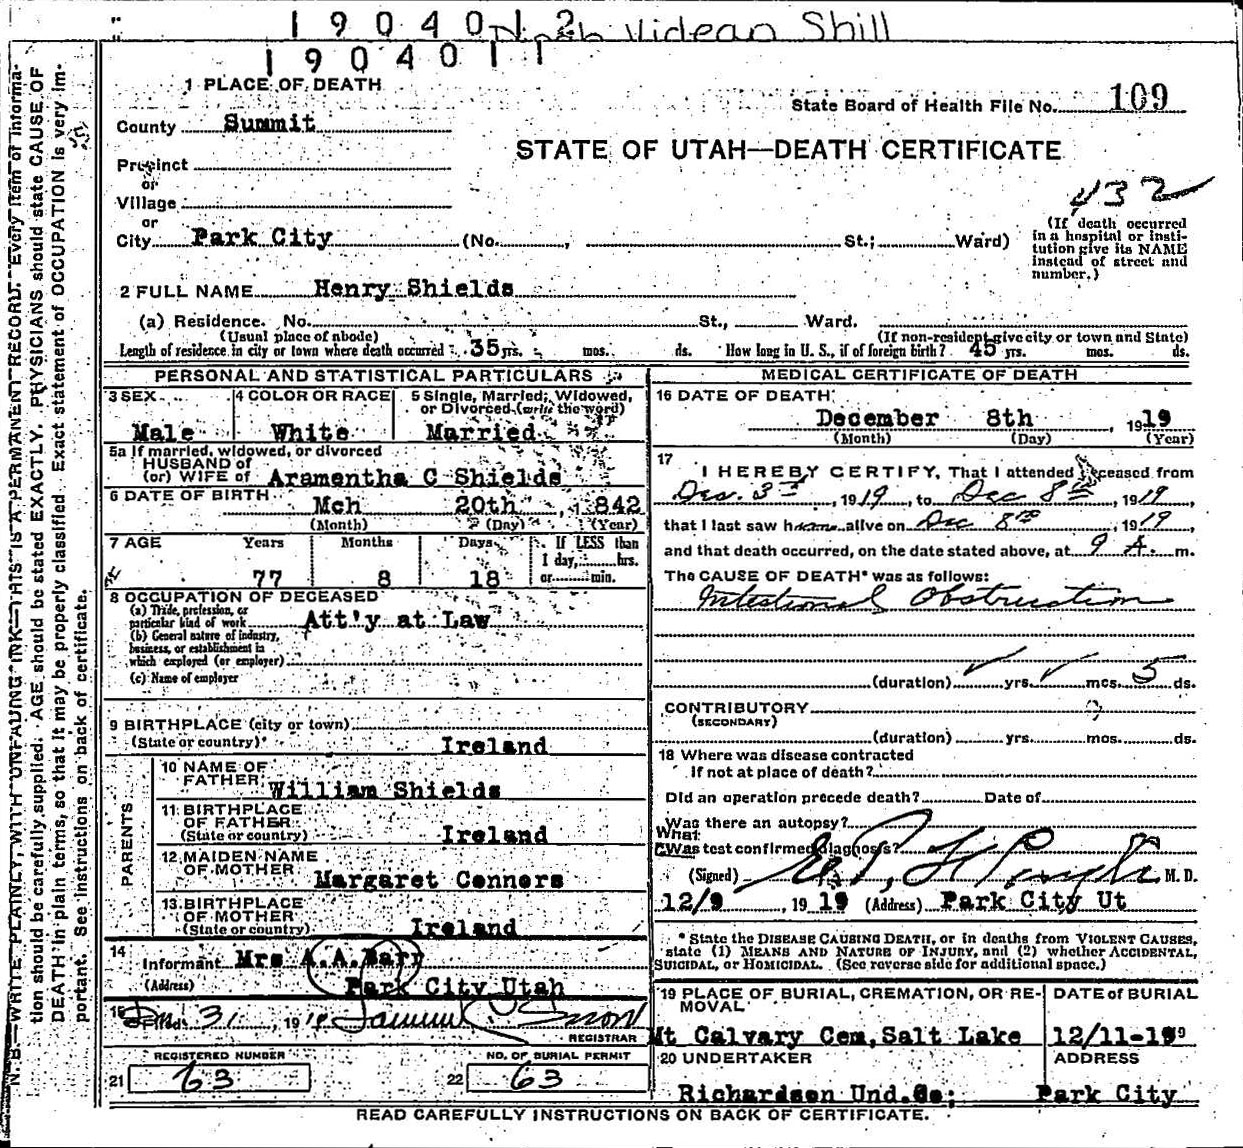 1904012
Videan Shill
1904011
1 PLACE OF DEATH
State Board of Health File No. 109
County Summit
STATE OF UTAH—DEATH CERTIFICATE
Precinct
or
Village
432
or
City Park City (No. , St.; Ward)
(If death occurred in a hospital or institution give its NAME instead of street and number.)
2 FULL NAME Henry Shields
(a) Residence. No. St., Ward.
(Usual place of abode) (If non-resident give city or town and State)
Length of residence in city or town where death occurred 35 yrs. mos. ds. How long in U. S., if of foreign birth? 45 yrs. mos. ds.
PERSONAL AND STATISTICAL PARTICULARS
3 SEX
Male
4 COLOR OR RACE
White
5 Single, Married, Widowed,
or Divorced (write the word)
Married
5a If married, widowed, or divorced
HUSBAND of
(or) WIFE of Aramentha C Shields
6 DATE OF BIRTH Mch 20th , 1842
(Month) (Day) (Year)
7 AGE Years Months Days If LESS than
1 day, hrs.
or min.
77 8 18
8 OCCUPATION OF DECEASED
(a) Trade, profession, or
particular kind of work Att'y at Law
(b) General nature of industry,
business, or establishment in
which employed (or employer)
(c) Name of employer
9 BIRTHPLACE (city or town)
(State or country) Ireland
PARENTS
10 NAME OF
FATHER William Shields
11 BIRTHPLACE
OF FATHER
(State or country) Ireland
12 MAIDEN NAME
OF MOTHER Margaret Connors
13 BIRTHPLACE
OF MOTHER
(State or country) Ireland
14 Informant Mrs A.A.Barr
(Address) Park City Utah
15 Filed 31 , 19
REGISTRAR
REGISTERED NUMBER
21 63
NO. OF BURIAL PERMIT
22 63
MEDICAL CERTIFICATE OF DEATH
16 DATE OF DEATH
December 8th , 1919
(Month) (Day) (Year)
17
I HEREBY CERTIFY, That I attended deceased from
Dec. 3rd, 1919, to Dec 8th, 1919
that I last saw h alive on Dec 8th, 1919,
and that death occurred, on the date stated above, at 9 A. m.
The CAUSE OF DEATH* was as follows:
Intestional Obstruction
(duration) yrs. mos. 5 ds.
CONTRIBUTORY
(SECONDARY)
(duration) yrs. mos. ds.
18 Where was disease contracted
If not at place of death?
Did an operation precede death? Date of
Was there an autopsy?
What
Was test confirmed diagnosis?
(Signed) M. D.
12/9 , 1919 (Address) Park City Ut
*State the DISEASE CAUSING DEATH, or in deaths from VIOLENT CAUSES,
state (1) MEANS AND NATURE OF INJURY, and (2) whether ACCIDENTAL,
SUICIDAL, or HOMICIDAL. (See reverse side for additional space.)
19 PLACE OF BURIAL, CREMATION, OR RE-
MOVAL
Mt Calvary Cem, Salt Lake
DATE of BURIAL
12/11-199
20 UNDERTAKER
Richardson Und.Co;
ADDRESS
Park City
READ CAREFULLY INSTRUCTIONS ON BACK OF CERTIFICATE.
N. B.—WRITE PLAINLY, WITH UNFADING INK—THIS IS A PERMANENT RECORD. Every item of informa-
tion should be carefully supplied. AGE should be stated EXACTLY. PHYSICIANS should state CAUSE OF
DEATH in plain terms, so that it may be properly classified. Exact statement of OCCUPATION is very im-
portant. See instructions on back of certificate.